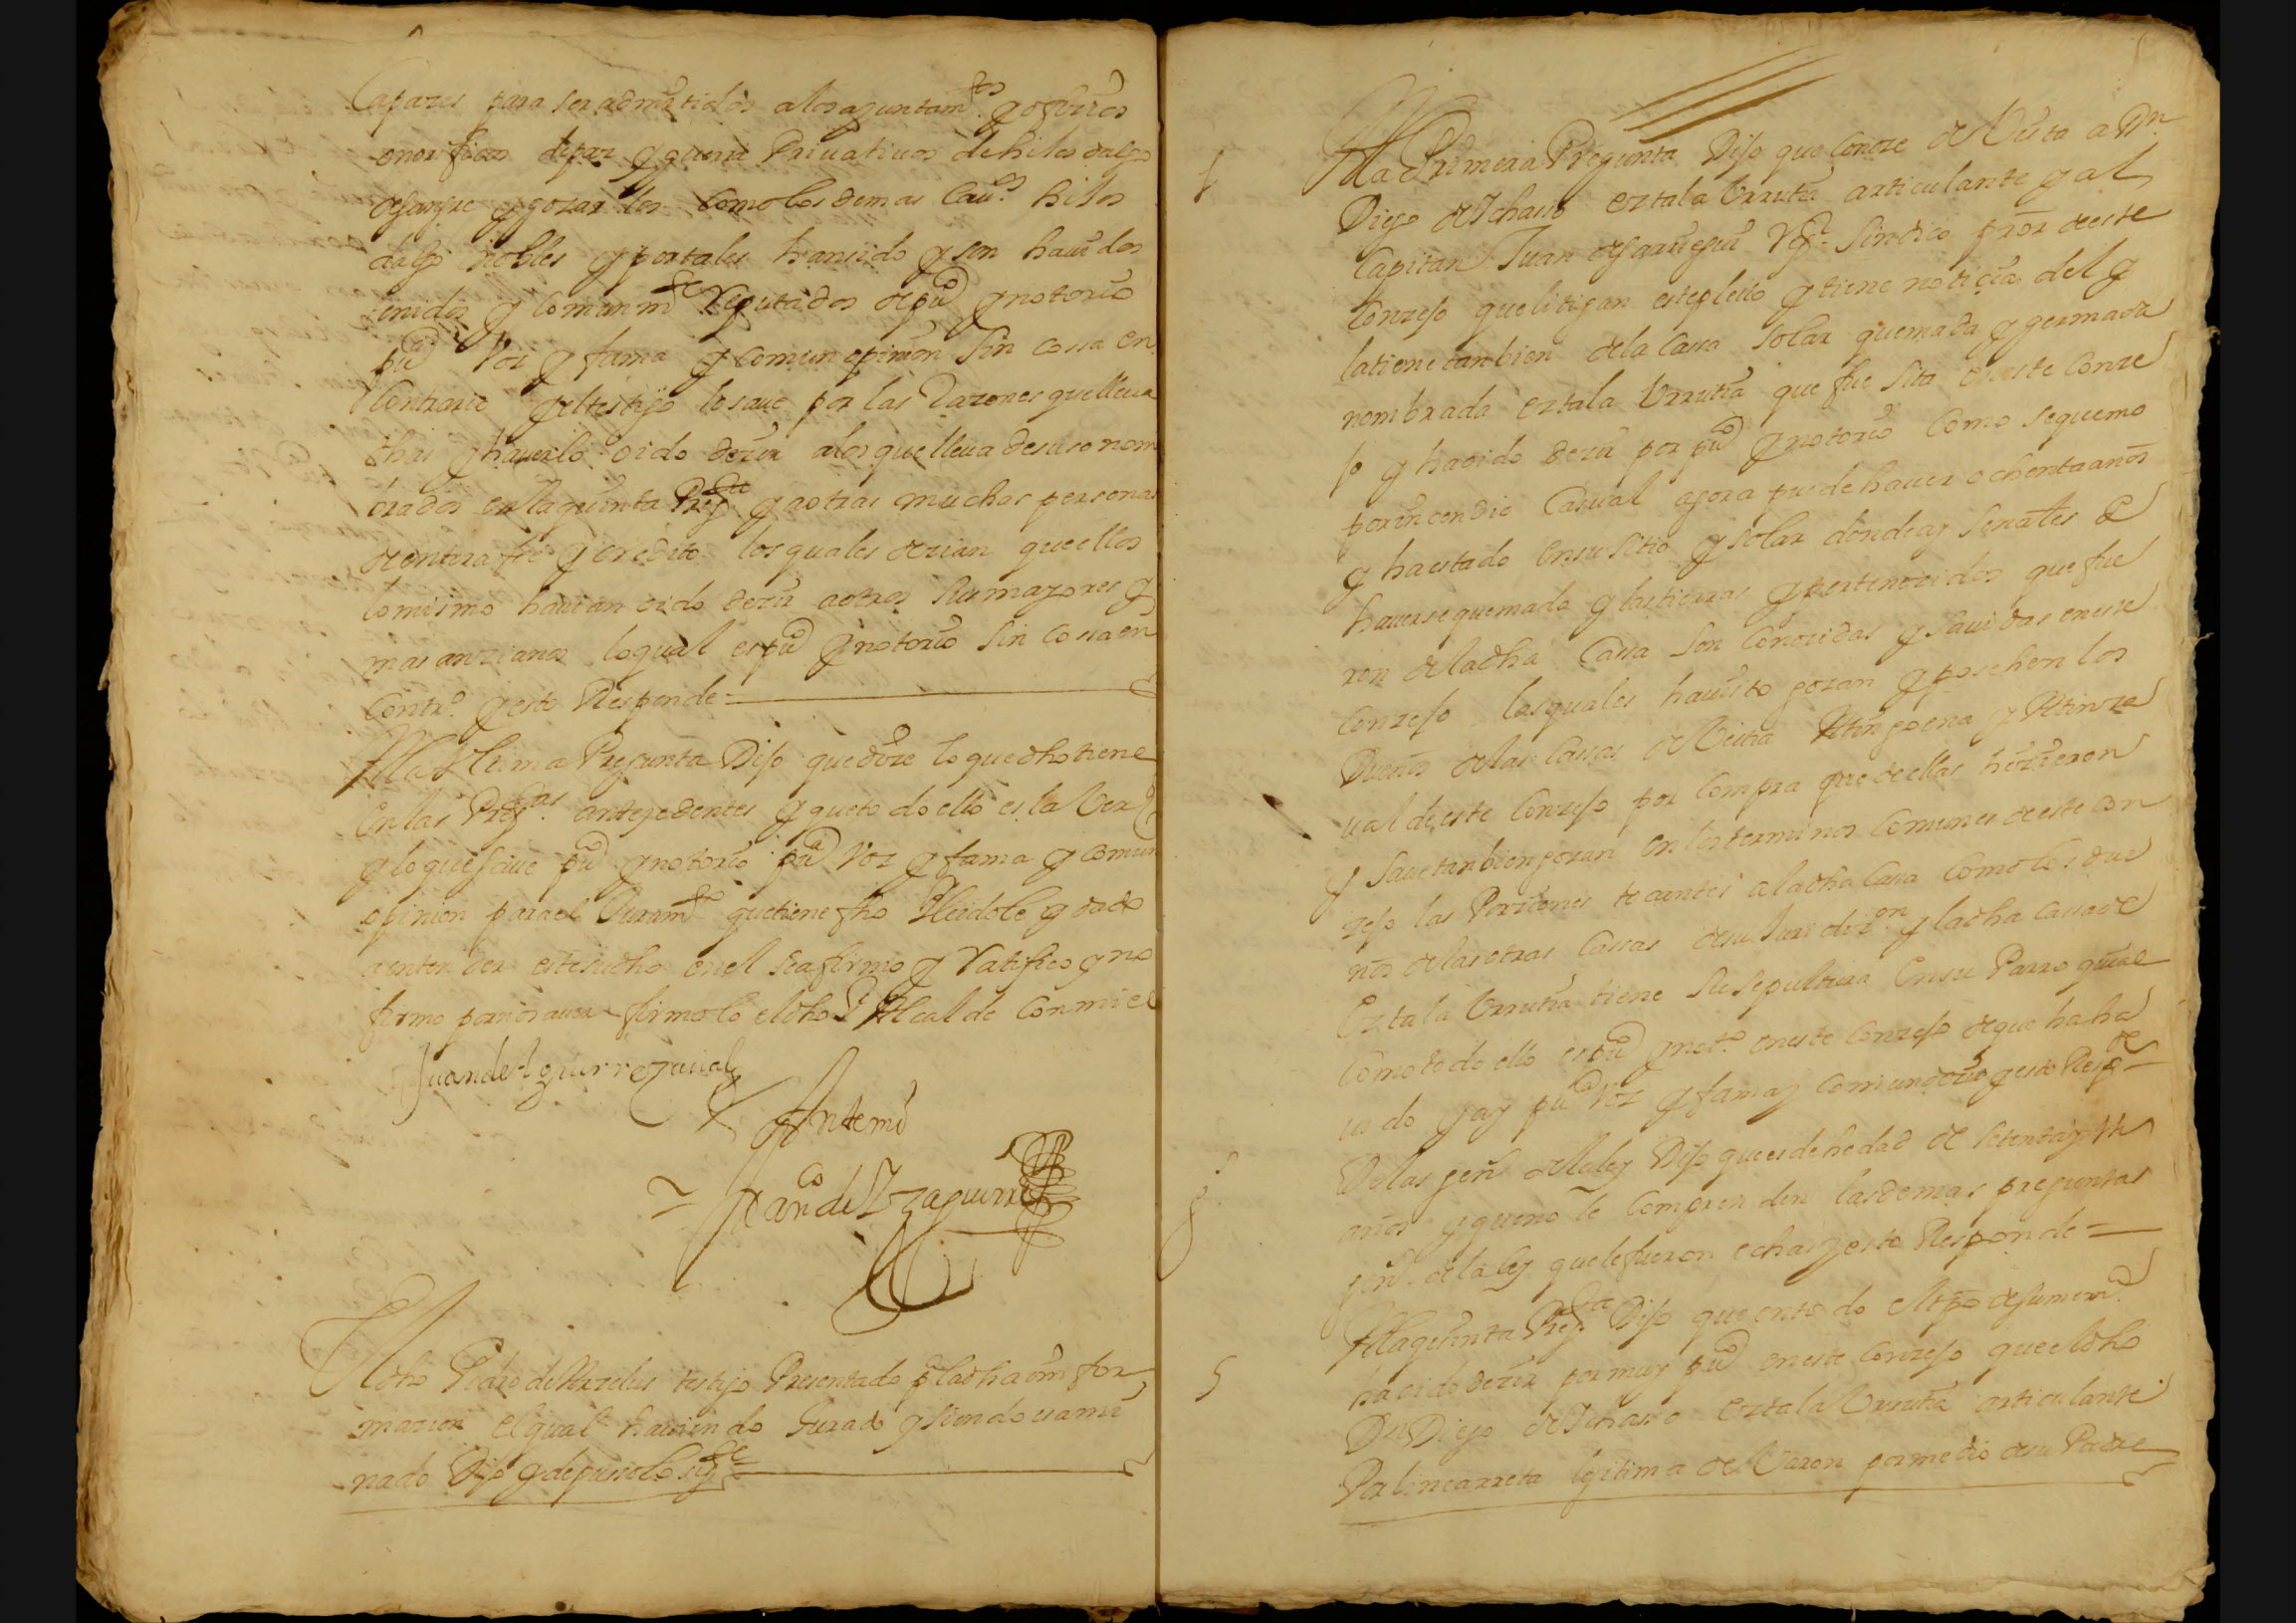 Capazes para ser admitidos a los ayuntam.tos y ofizios
onorificos de paz y guerra Privativos de hijos dalgo
de sangre y gozar los como los demas cau.os hijos
dalgo nobles y por tales han sido y son hauidos
tenidos y comunm.te Reputados de pu.co y notorio
pu.ca voz y fama y comun opinion sin cossa en
Contrario y el testigo lo saue por las Razones que lleua
dhas y hauerlo oido dezir a los que lleua de suso nom
brados en la quinta Preg.ta y a otras muchas personas
de entera fee y credito los quales dezian que ellos
lo mismo hauian oido dezir a otros sus mayores y
mas anzianos lo qual es pu.co y notorio sin cossa en
Contr.o y esto Responde
A la Ultima Pregunta Dijo que dize lo que dho tiene
En las Preg.tas antezedentes y que todo ello es la Verd
y lo que saue pu.co y notorio pu.ca voz y fama y comun
opinion para el Juram.to que tiene fho Leidole y dado
a entender este su dho en el se afirmo y Ratifico y no
firmo por no sauer firmolo el dho S.r Alcalde Con mi el
Juan de Aguirrezaual
Ante mi
Fran.co de Yzaguirre
El dho Pedro de Arzelus testigo Presentado p.a la dha ynfor
mazion el qual hauiendo Jurado y siendo exami
nado Dijo y depusso lo sig.te
1 A la Primera Pregunta Dijo que Conoze de Vista a Dn.
Diego de Ichasso Eztala Urrutia articulante y al
Capitan Juan de Garuegui Vz.o Sindico pror de este
Conzejo que litigan este pleito y tiene noticia del y
la tiene tanbien de la Cassa solar quemada y yermada
nombrada Eztala Urrutia que fue sita en este Conze
jo y ha oido dezir por pu.co y notorio Como se quemo
por yncendio Casual agora puede hauer ochenta años
y ha estado en su sitio y solar donde ay señales de
hauerse quemado y las tierras y pertenezidos que fue
ron de la dha Cassa son Conozidas y sauidas en este
Conzejo las quales ha visto gozan y posehen los
Dueños de las Cassas de
ual de este Conzejo por Compra que de ellas hizieron
y saue tanbien gozan en los terminos Comunes de este Con
zejo las Porziones tocantes a la dha Cassa Como los due
ños de las otras Cassas de su Juridiz.on y la dha Cassa de
Eztala Urrutia tiene su sepultura En su Parroquial
Como todo ello es pu.co y not.o en este Conzejo de que ha ha
uido y ay pu.ca voz y fama y Comun y esto Resp.de
De las gen.s de la ley Dijo que es de hedad de setenta y
años y que no le Comprenden las demas preguntas
gen.s de la ley que le fueron echas y esto Responde
5 A la quinta Preg.ta Dijo que en todo el tpo de su mem.a
ha oido dezir por muy pu.co en este Conzejo que el dho
Dn Diego de Ichasso Eztala Urrutia articulante
Por linea rreta legitima de Varon por medio de su Padre